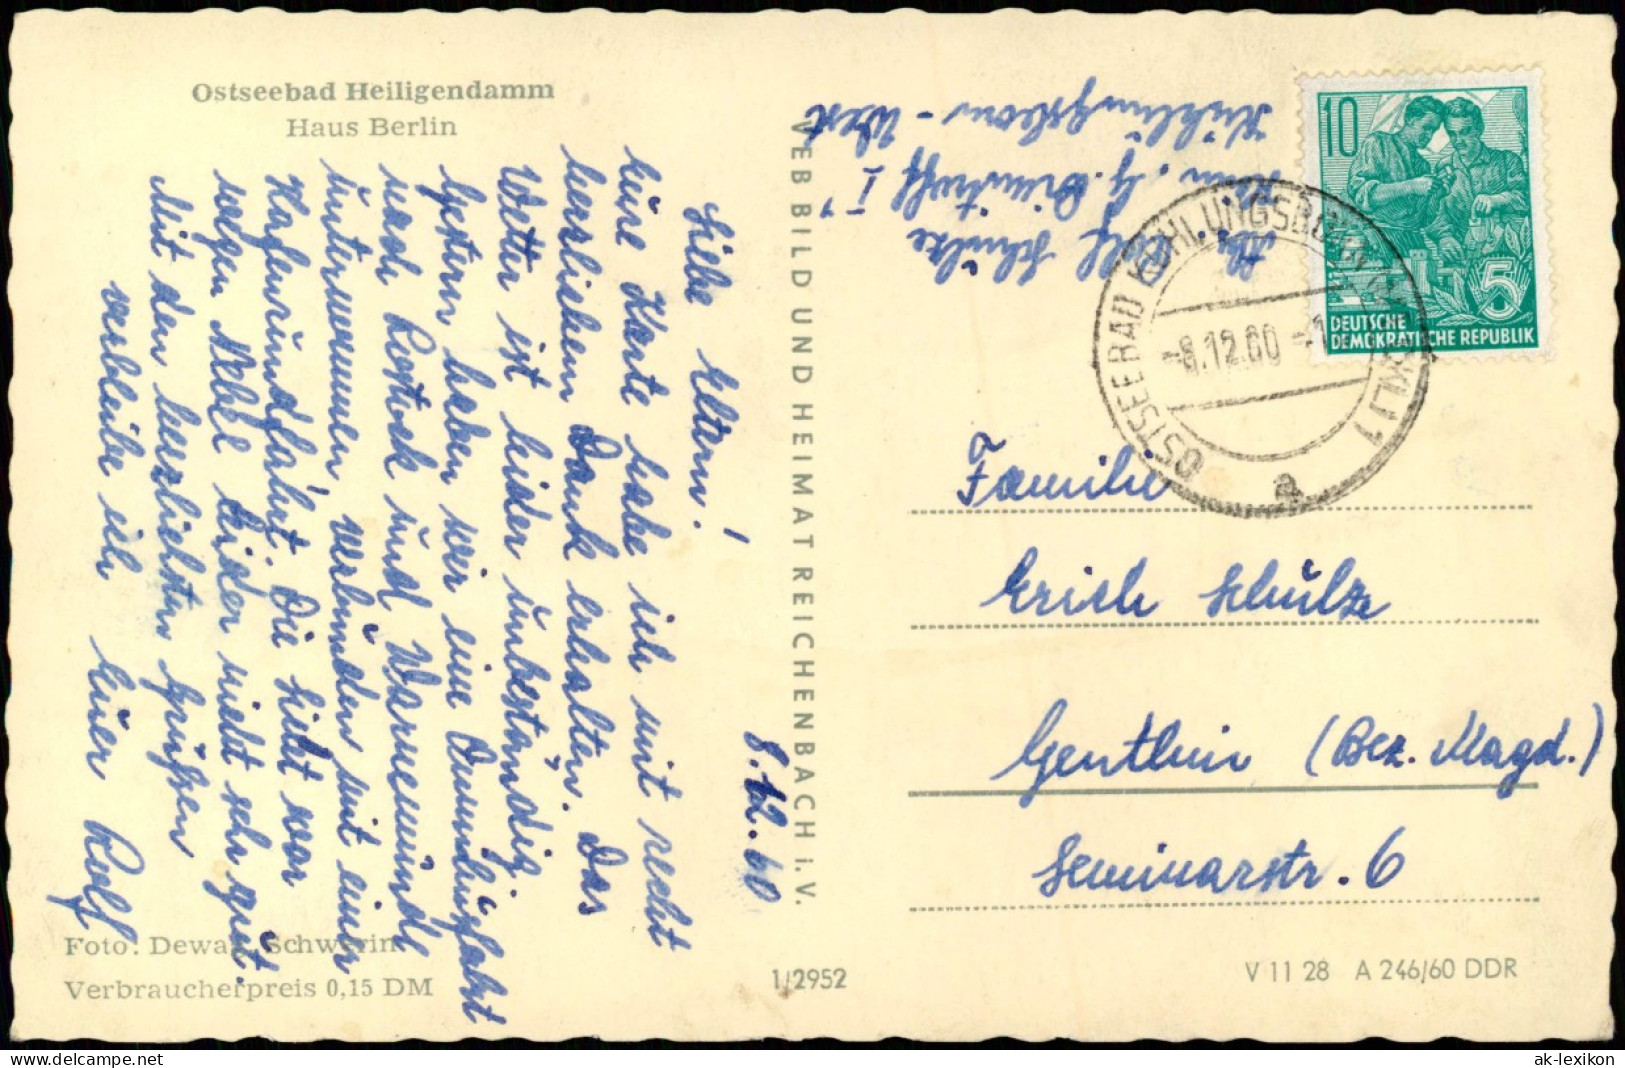 Ostseebad Heiligendamm
Haus Berlin
8.12.60
Liebe Eltern!
Eure Karte habe ich mit recht
herzlichem Dank erhalten. Das
Wetter ist leider unbeständig.
Gestern haben wir eine Omnibusfahrt
nach Rostock und Warnemünde
unternommen, verbunden mit einer
Hafenrundfahrt. Die Sicht war
wegen Nebel leider nicht sehr gut.
Mit den herzlichsten Grüßen
verbleibe ich Euer Rolf
Foto: Schwerin
Verbraucherpreis 0,15 DM
VEB BILD UND HEIMAT REICHENBACH i.V.
1/2952
Abs. Rolf Schulze
Heim „G. Dimitroff I"
Kühlungsborn - West
10
5
DEUTSCHE
DEMOKRATISCHE REPUBLIK
OSTSEEBAD KÜHLUNGSBORN 1
-8.12.60 -1
a
Familie
Erich Schulze
Genthin (Bez. Magd.)
Seminarstr. 6
V 11 28 A 246/60 DDR
ak-lexikon